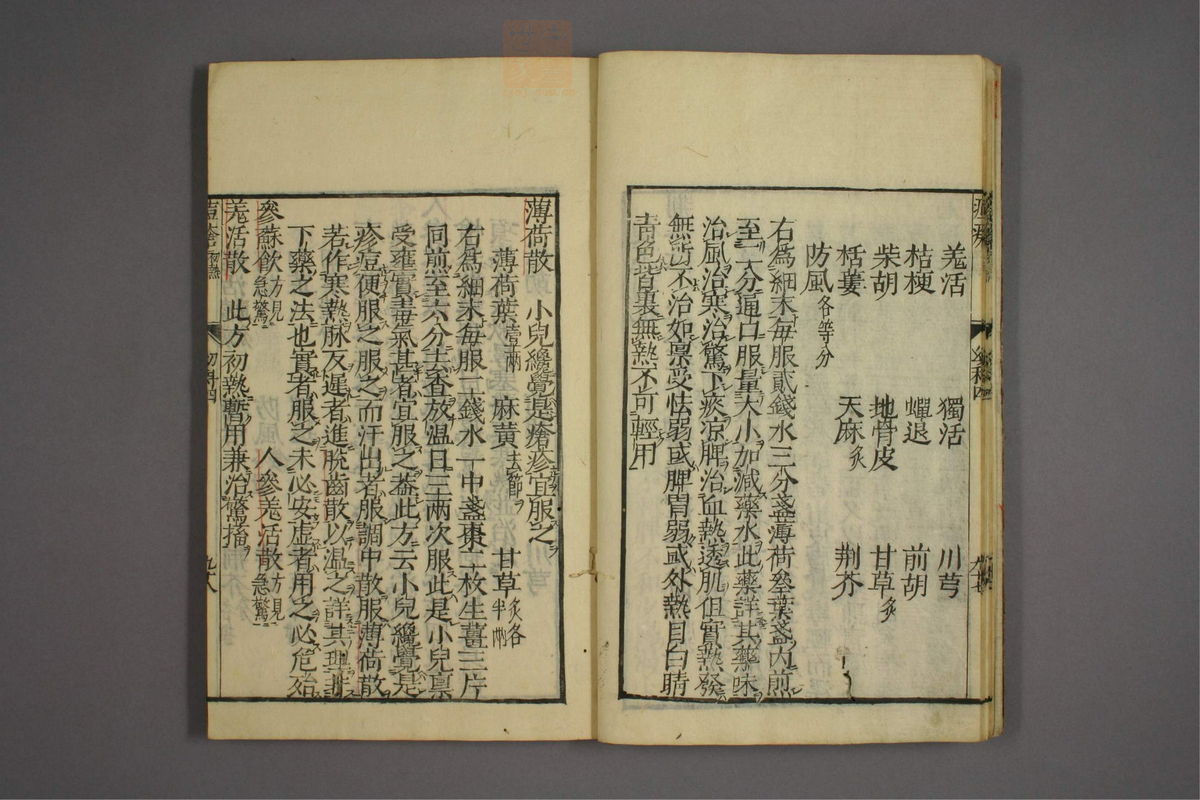 羗活 獨活 川芎
桔梗 蟬退 前胡
柴胡 地骨皮 甘草炙
栝蔞 天麻炙 荆芥
防風各等分
右爲細末每服貳錢水三分盞薄荷叄葉盞內煎
至二分通口服量大小加減藥水此藥詳其藥味
治風治寒治驚下痰凉脾治血熱透肌但實熱發
無所不治如禀受怯弱或脾胃弱或外熱目白睛
靑色皆裏無熱不可輕用
薄荷散 小兒纔覺是瘡疹宜服之
薄荷葉壹兩 麻黃去節 甘草炙各半兩
右爲細末每服二錢水一中盞棗二枚生薑三片
同煎至六分去査放温日三兩次服此是小兒禀
受壅實毒氣甚者宜服之盖此方云小兒纔覺是
疹痘便服之服之而汗出者服調中散服薄荷散
若作寒熱脉反遲者進脫齒散以温之詳其理
下藥之法也實者服之未必安虚者用之必危殆
參蘇飮方見急驚 人參羗活散方見急驚
羗活散 此方初熱暫用兼治驚搐
幼科四 九十八